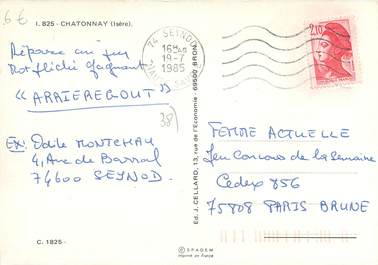 6€
I. 825 - CHATONNAY (Isère).
Réponse au jeu
Mot fléché gagnant
"ARRIEREGOUT"
38
EX: Odile MONTCHAY
4, Ave de Barral
74600 SEYNOD.
C. 1825 -
Ed. J. CELLARD, 13, rue de l'Economie - 69500 BRON
© SPADEM
Imprimé en France
74 SEYNOD
16H
19-7
1985
2,10
FEMME ACTUELLE
Jeu Concours de la Semaine
Cedex 856
75808 PARIS BRUNE